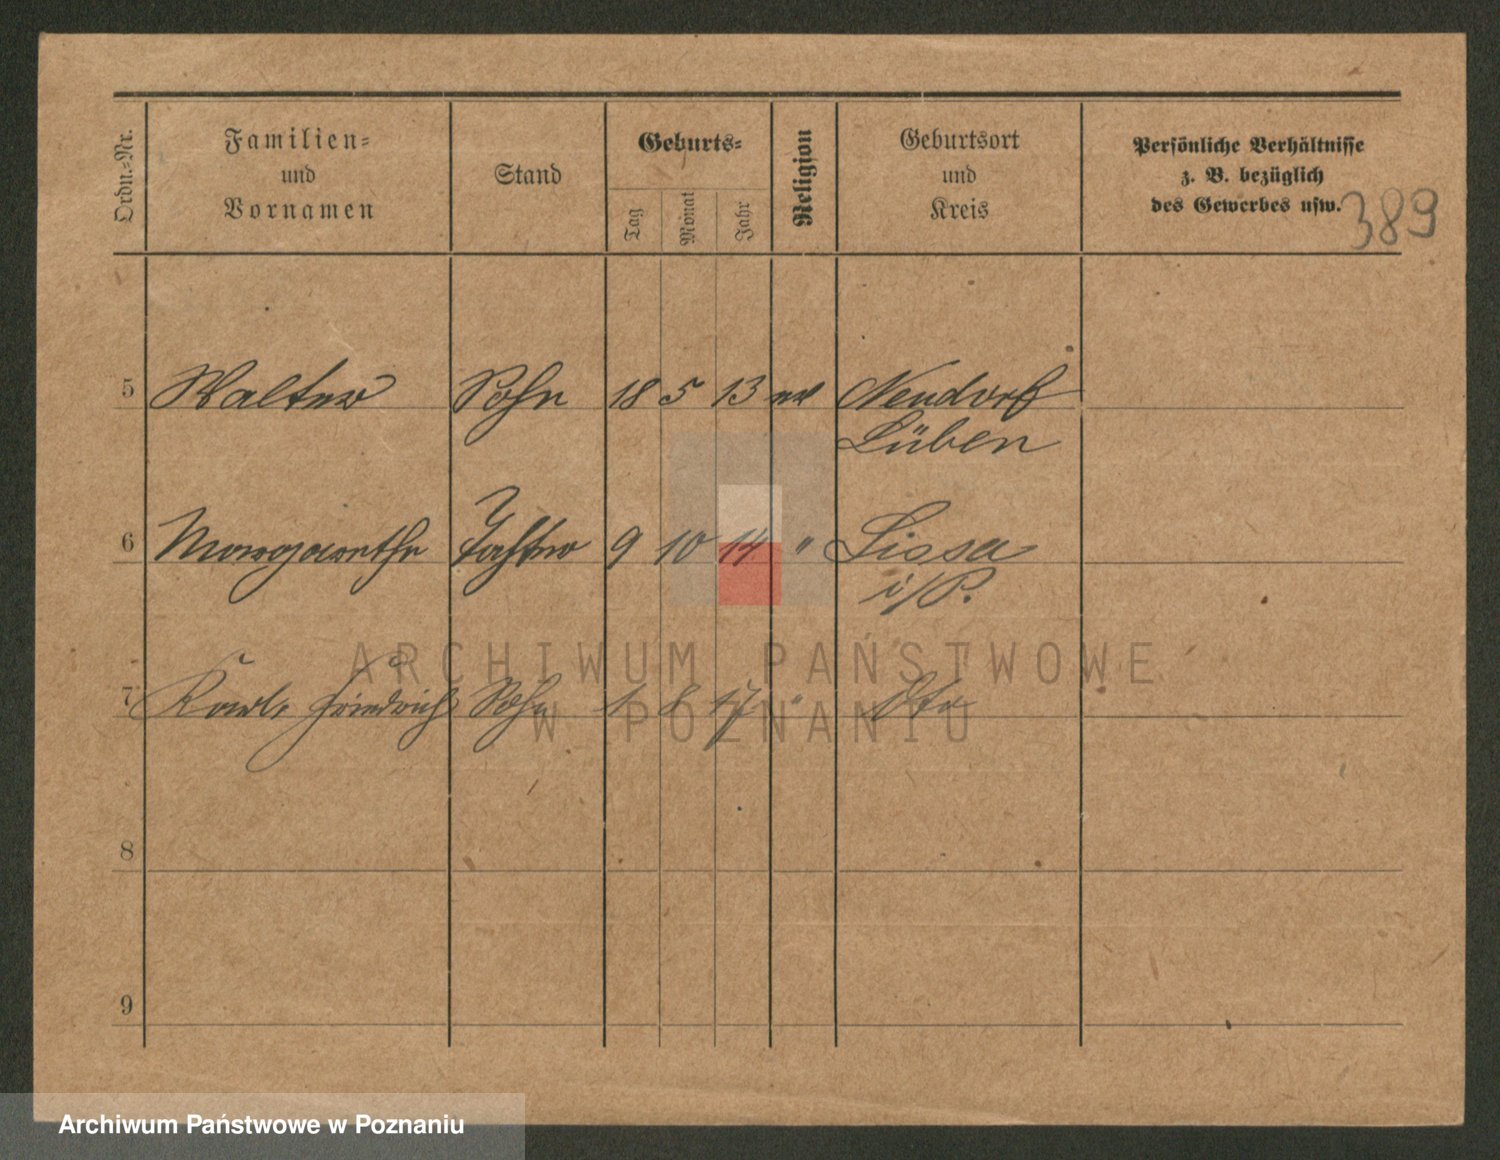 Ordn.-Nr.
Familien-
und
Vornamen
Stand
Geburts-
Tag
Monat
Jahr
Religion
Geburtsort
und
Kreis
Persönliche Verhältnisse
z. B. bezüglich
des Gewerbes usw.
389
5 Walter Sohn 18 5 13 ev Neudorf
Lüben
6 Margarethe Tochter 9 10 14 " Lissa
i/P.
7 Friedrich Sohn 1 8 17 "
8
9
ARCHIWUM PAŃSTWOWE
W POZNANIU
Archiwum Państwowe w Poznaniu